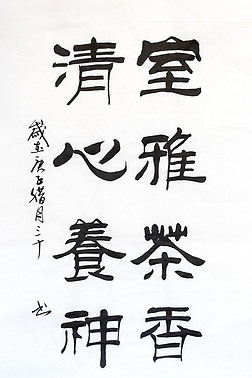 室雅茶香
清心養神
歲在庚子臘月三十